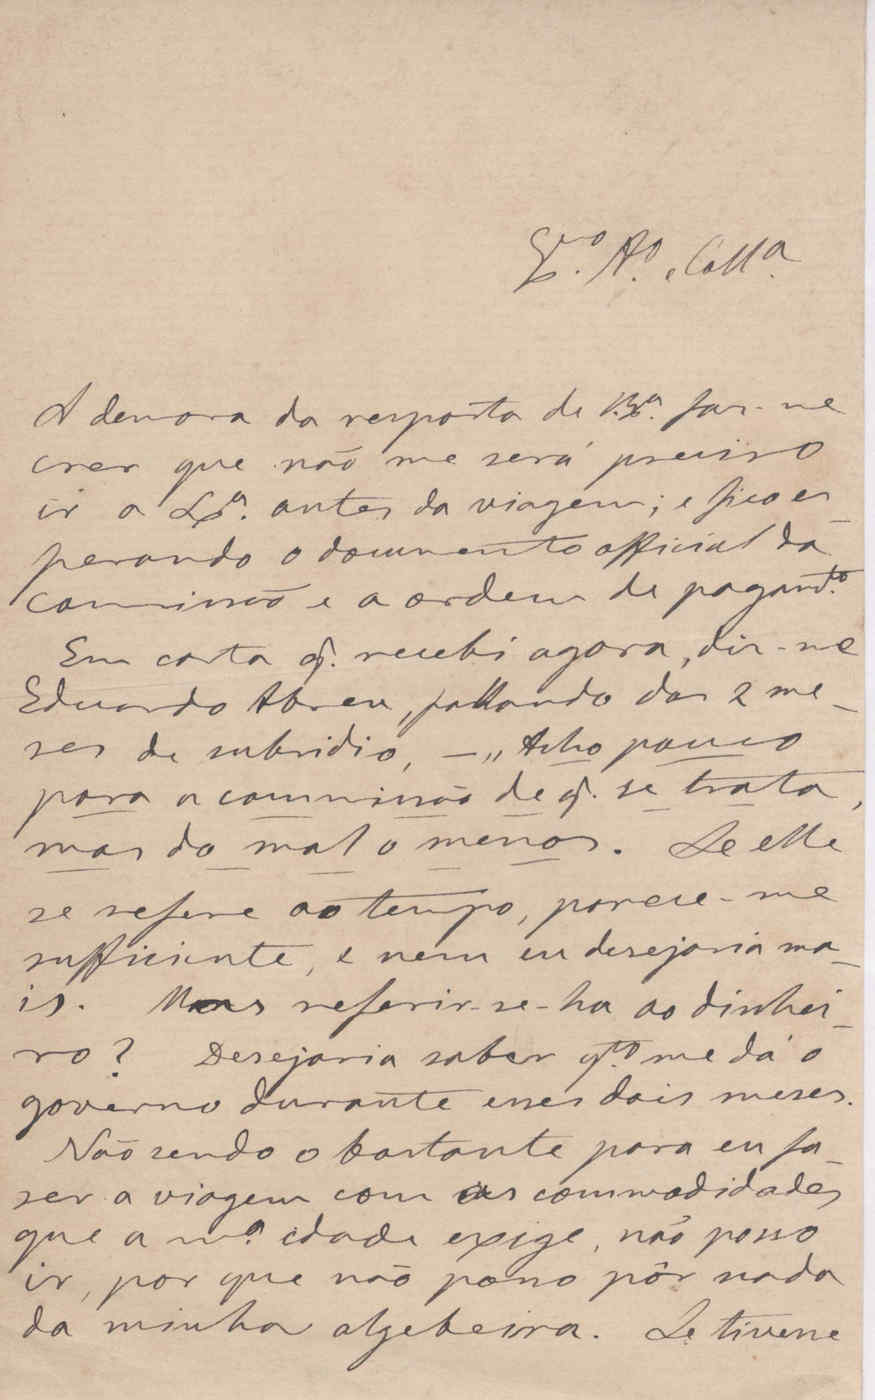 Ex.mo A.o e Coll.a
A demora da resposta de V. Ex.a faz-me
crer que não me será preciso
ir a Lx.a antes da viagem; e fico es-
perando o documento official da
commissão e a ordem de pagam.to
Em carta q. recebi agora, diz-me
Eduardo Abreu, fallando dos 2 me-
ses de subsidio, — „Acho pouco
para a commissão de q. se trata,
mas do mal o menos. Se elle
se refere ao tempo, parece-me
sufficiente, e nem eu desejaria ma-
is. Mas referir-se-ha ao dinhei-
ro? Desejaria saber q.to me dá o
governo durante esses dois meses.
Não sendo o bastante para eu fa-
ser a viagem com as commodidades
que a m.a idade exige, não posso
ir, por que não posso pôr nada
da minha algebeira. Se tivesse